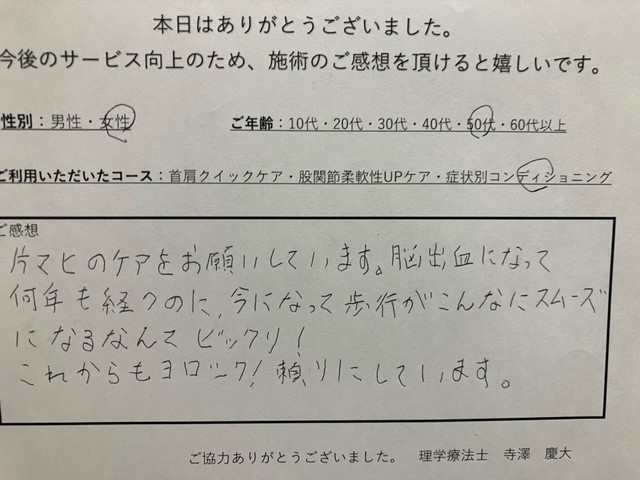 本日はありがとうございました。
今後のサービス向上のため、施術のご感想を頂けると嬉しいです。
性別：男性・女性 ご年齢：10代・20代・30代・40代・50代・60代以上
ご利用いただいたコース：首肩クイックケア・股関節柔軟性UPケア・症状別コンディショニング
ご感想
片マヒのケアをお願いしています。脳出血になって
何年も経つのに、今になって歩行がこんなにスムーズ
になるなんてビックリ！
これからもヨロシク！頼りにしています。
ご協力ありがとうございました。 理学療法士 寺澤 慶大